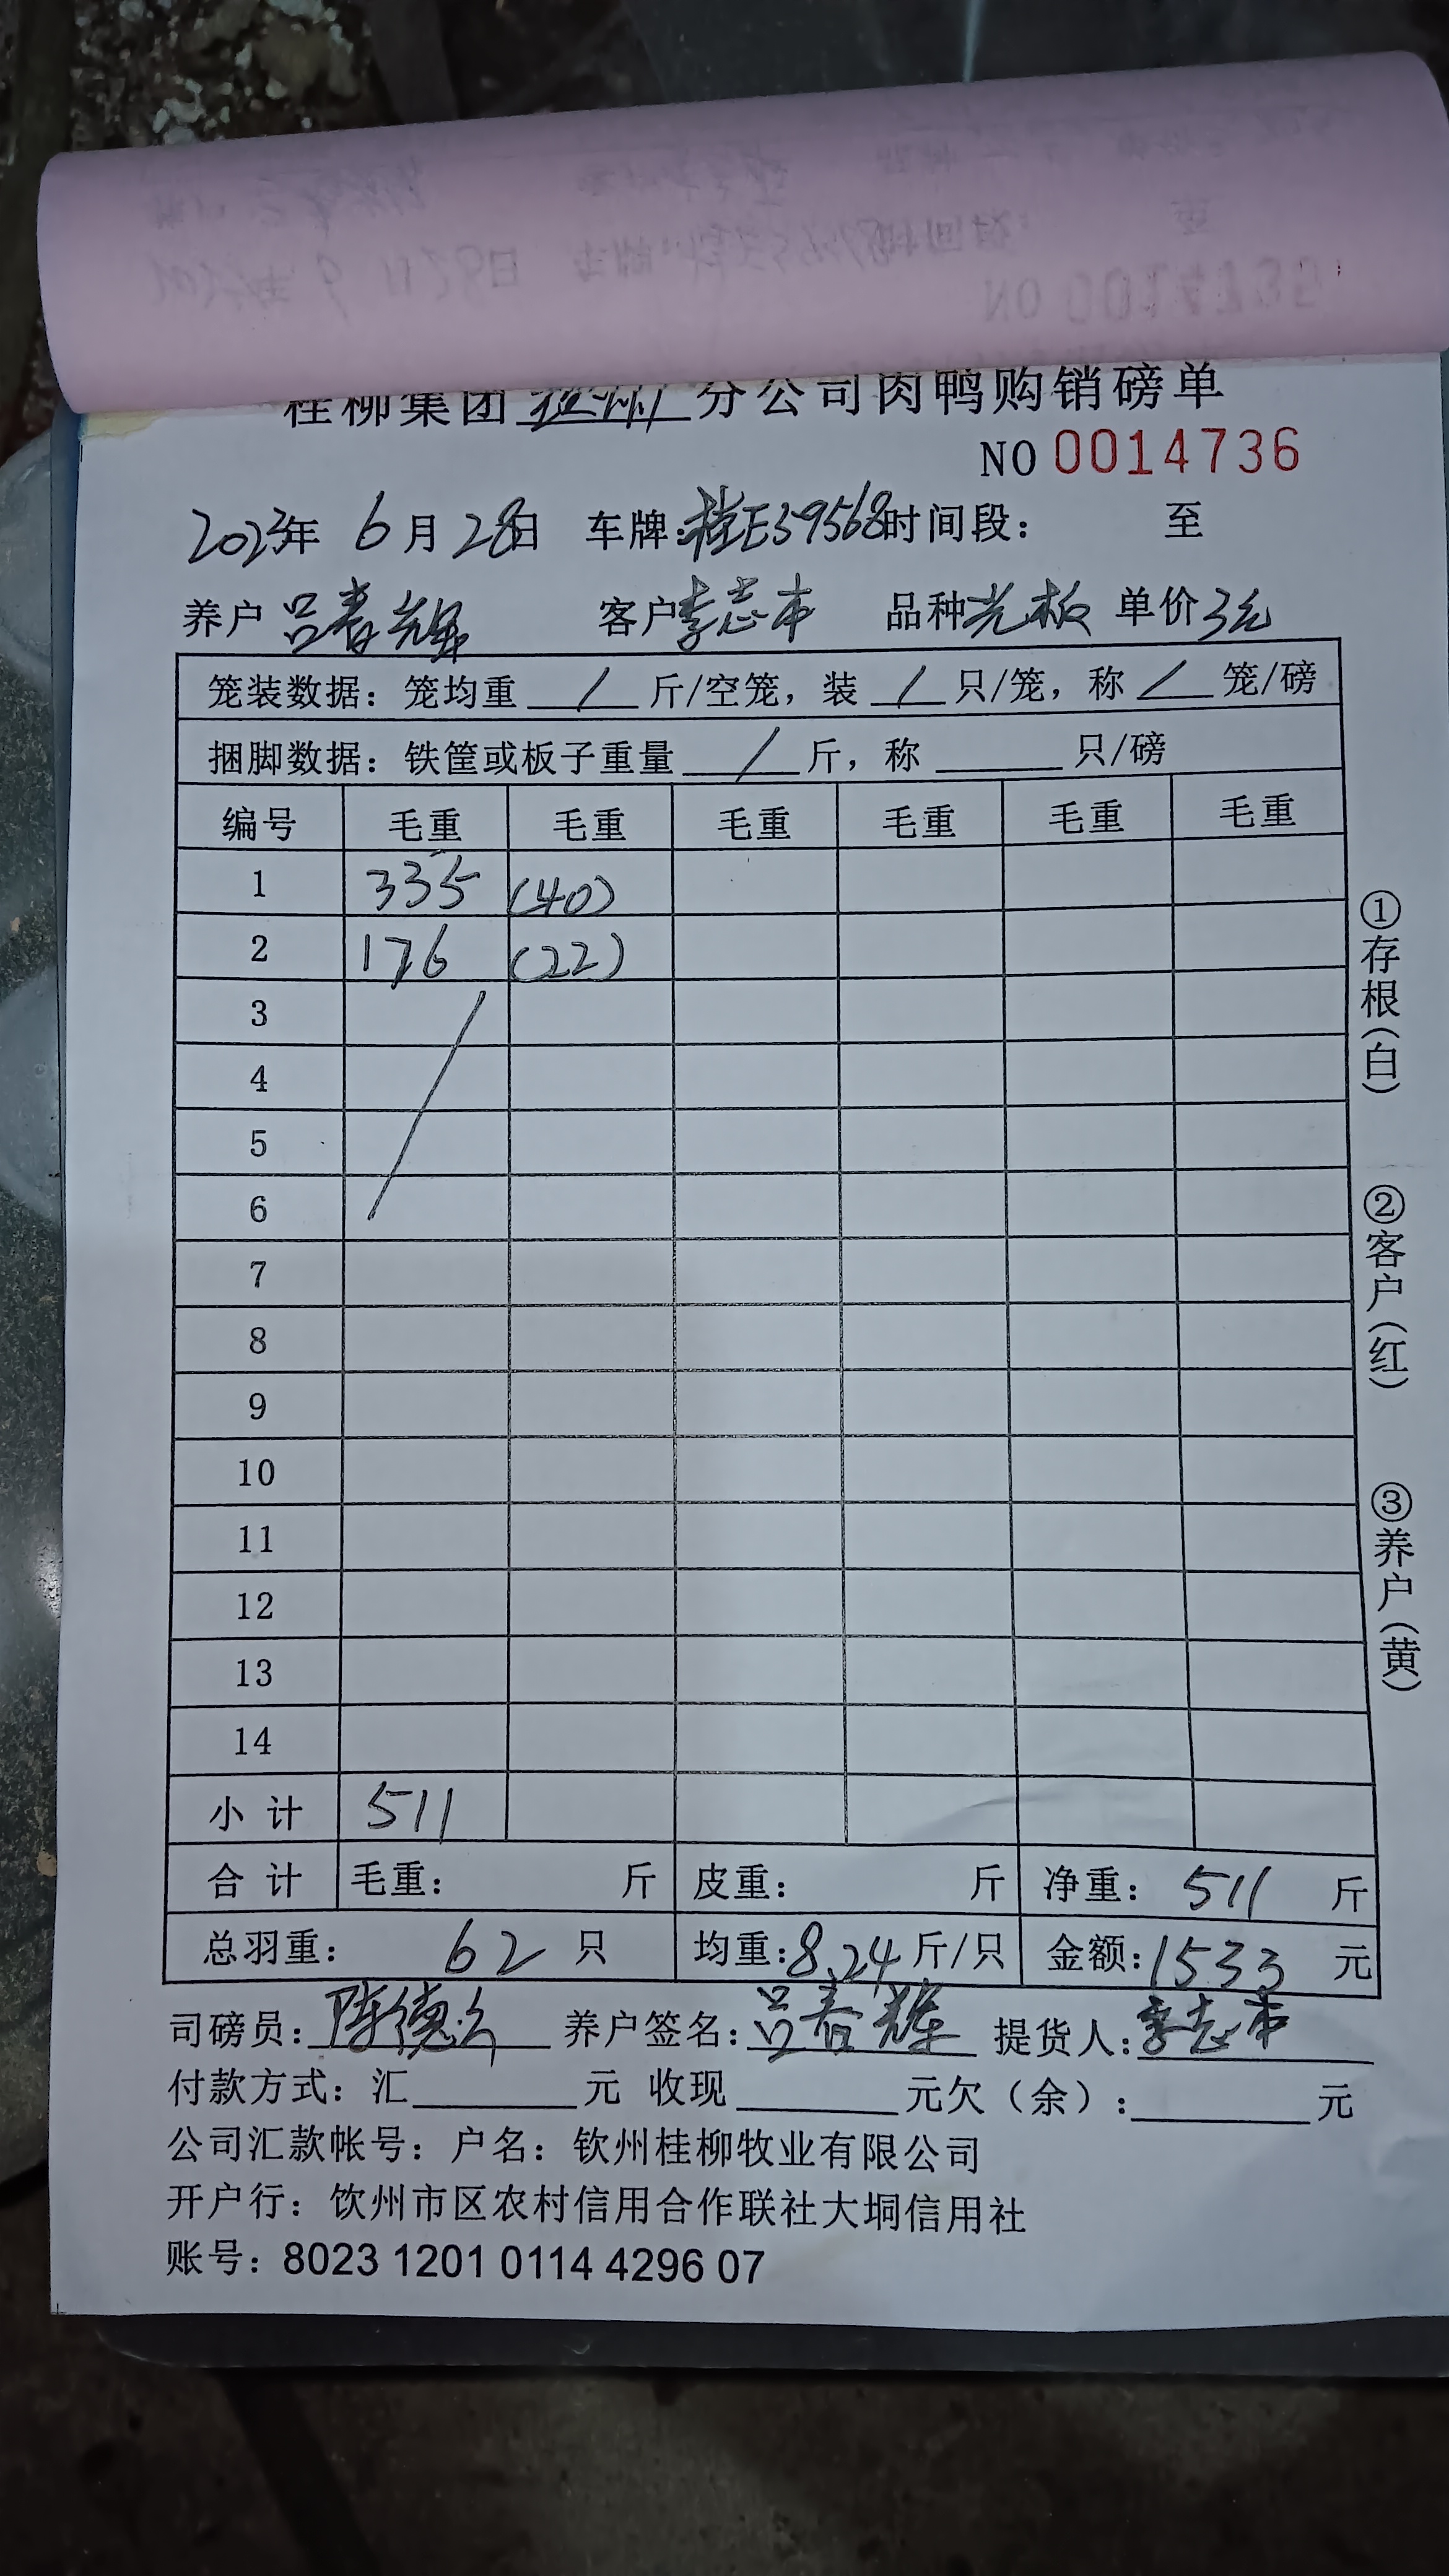 桂柳集团 分公司肉鸭购销磅单
NO 0014736
2023年 6月28日 车牌:桂E39568时间段: 至
养户 吕春辉 客户李志本 品种光板 单价3元
笼装数据: 笼均重 / 斤/空笼, 装 / 只/笼, 称 / 笼/磅
捆脚数据: 铁筐或板子重量 / 斤, 称 只/磅
编号 毛重 毛重 毛重 毛重 毛重 毛重
1 335 (40)
2 176 (22)
3
4
5
6
7
8
9
10
11
12
13
14
小计 511
合计 毛重: 斤 皮重: 斤 净重: 511 斤
总羽重: 62 只 均重:8.24斤/只 金额:1533 元
司磅员: 陈德 养户签名: 吕春辉 提货人:李志本
付款方式: 汇 元 收现 元欠(余): 元
公司汇款帐号: 户名: 钦州桂柳牧业有限公司
开户行: 饮州市区农村信用合作联社大垌信用社
账号: 8023 1201 0114 4296 07
①存根(白)
②客户(红)
③养户(黄)